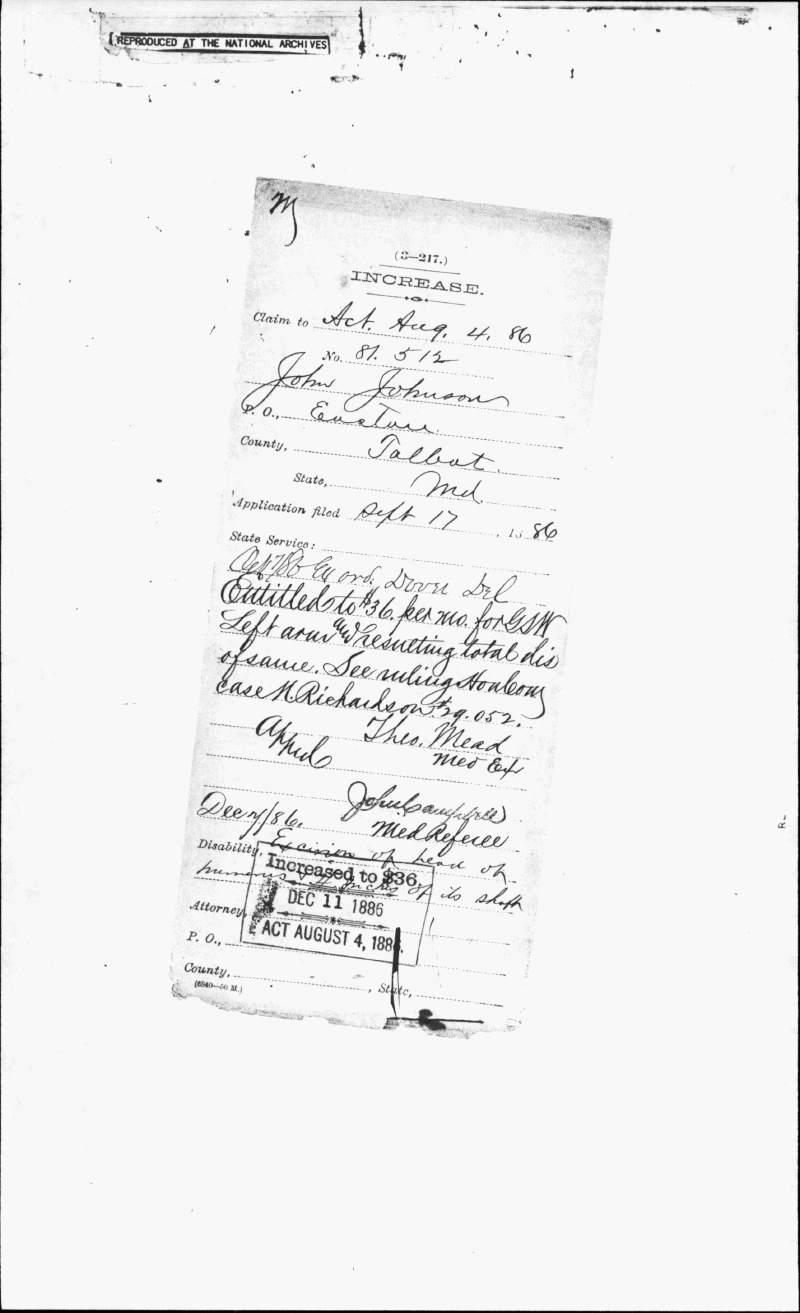 REPRODUCED AT THE NATIONAL ARCHIVES
M
(3—217.)
INCREASE.
Claim to Act. Aug. 4. 86
No. 81. 512
John Johnson
P. O., Easton.
County, Talbot.
State, Md.
Application filed Sept 17, 1886
State Service:
ord. Dover Del
Entitled to $36. per mo. for GSW
Left arm and resulting total dis
of same. See ruling Hon Com
case N Richardson #29.052.
Theo. Mead
Med Exr
Appd
John Campbell
Med Referee
Dec 7/86.
Disability, Excision of head of
humerus & inches of its shaft
Increased to $36.
DEC 11 1886
ACT AUGUST 4, 1886.
Attorney,
P. O.,
County, , State,